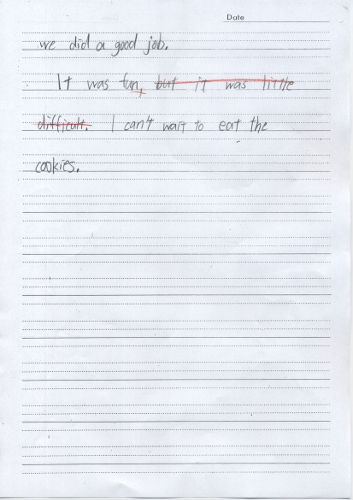 Date
we did a good job.
It was fun, but it was little
difficult. I can't wait to eat the
cookies.